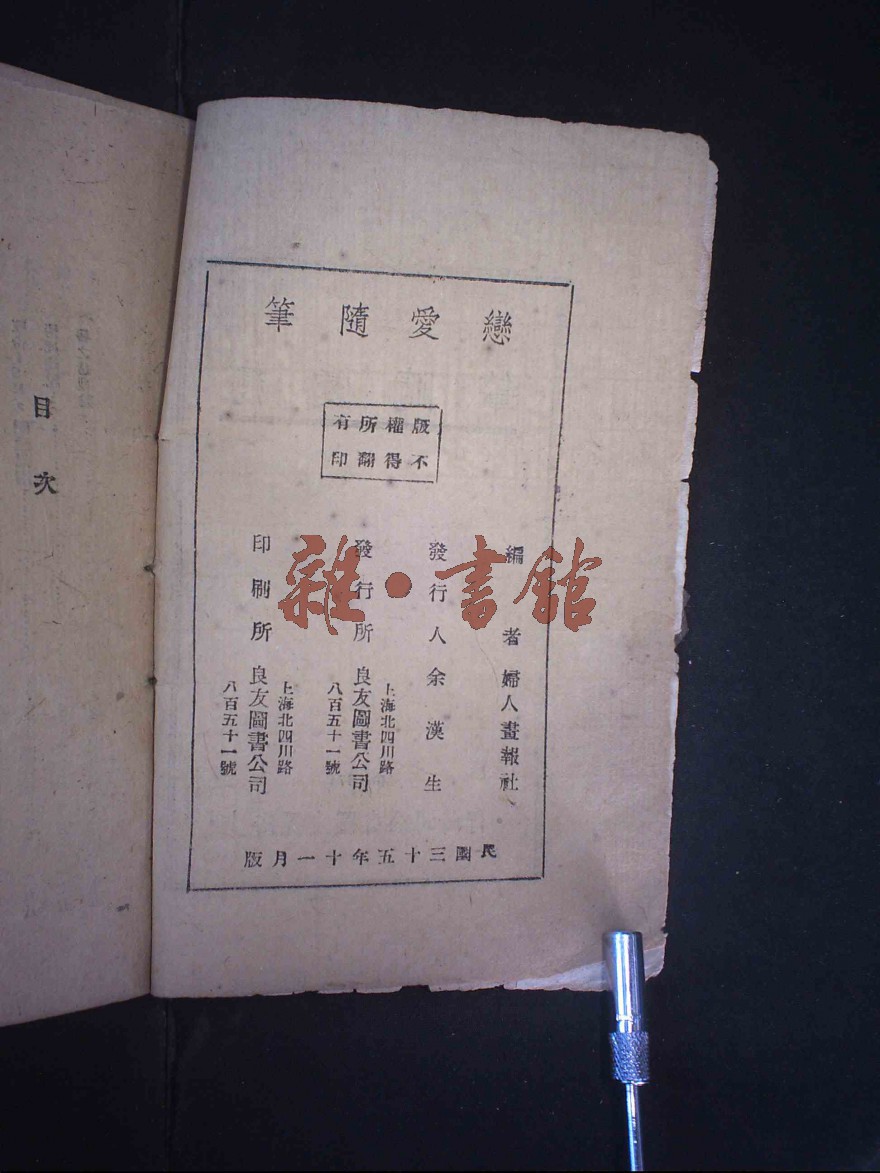 戀愛隨筆
版權所有
不得翻印
編者 婦人畫報社
發行人 余漢生
發行所 良友圖書公司
上海北四川路
八百五十一號
印刷所 良友圖書公司
上海北四川路
八百五十一號
民國三十五年十一月版
目次
雜·書館